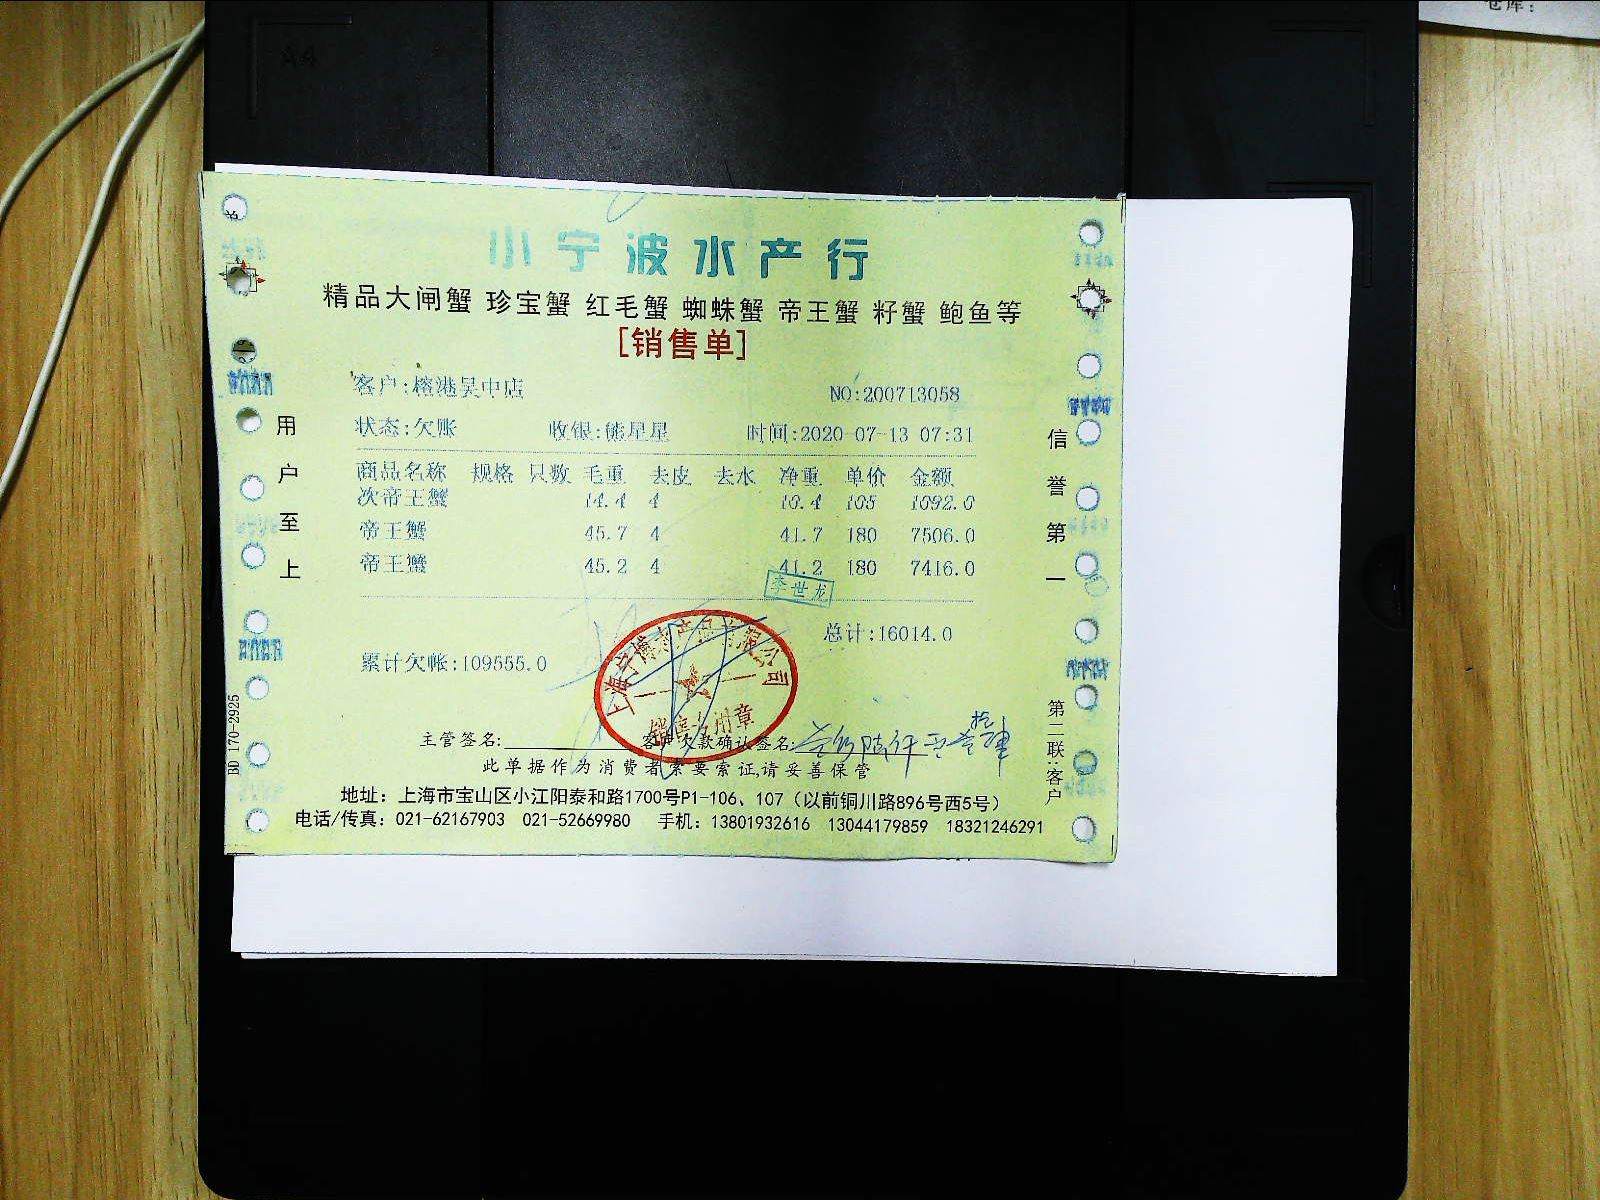 仓库:
A4
小宁波水产行
精品大闸蟹 珍宝蟹 红毛蟹 蜘蛛蟹 帝王蟹 籽蟹 鲍鱼等
[销售单]
客户:榕港吴中店 NO:200713058
状态:欠账 收银:熊星星 时间:2020-07-13 07:31
商品名称 规格 只数 毛重 去皮 去水 净重 单价 金额
次帝王蟹 14.4 4 10.4 105 1092.0
帝王蟹 45.7 4 41.7 180 7506.0
帝王蟹 45.2 4 41.2 180 7416.0
李世龙
总计:16014.0
累计欠帐:109555.0
主管签名: 客户欠款确认签名:
此单据作为消费者索要索证,请妥善保管
地址：上海市宝山区小江阳泰和路1700号P1-106、107（以前铜川路896号西5号）
电话/传真：021-62167903 021-52669980 手机：13801932616 13044179859 18321246291
用户至上
信誉第一
第二联:客户
BD 170-2925